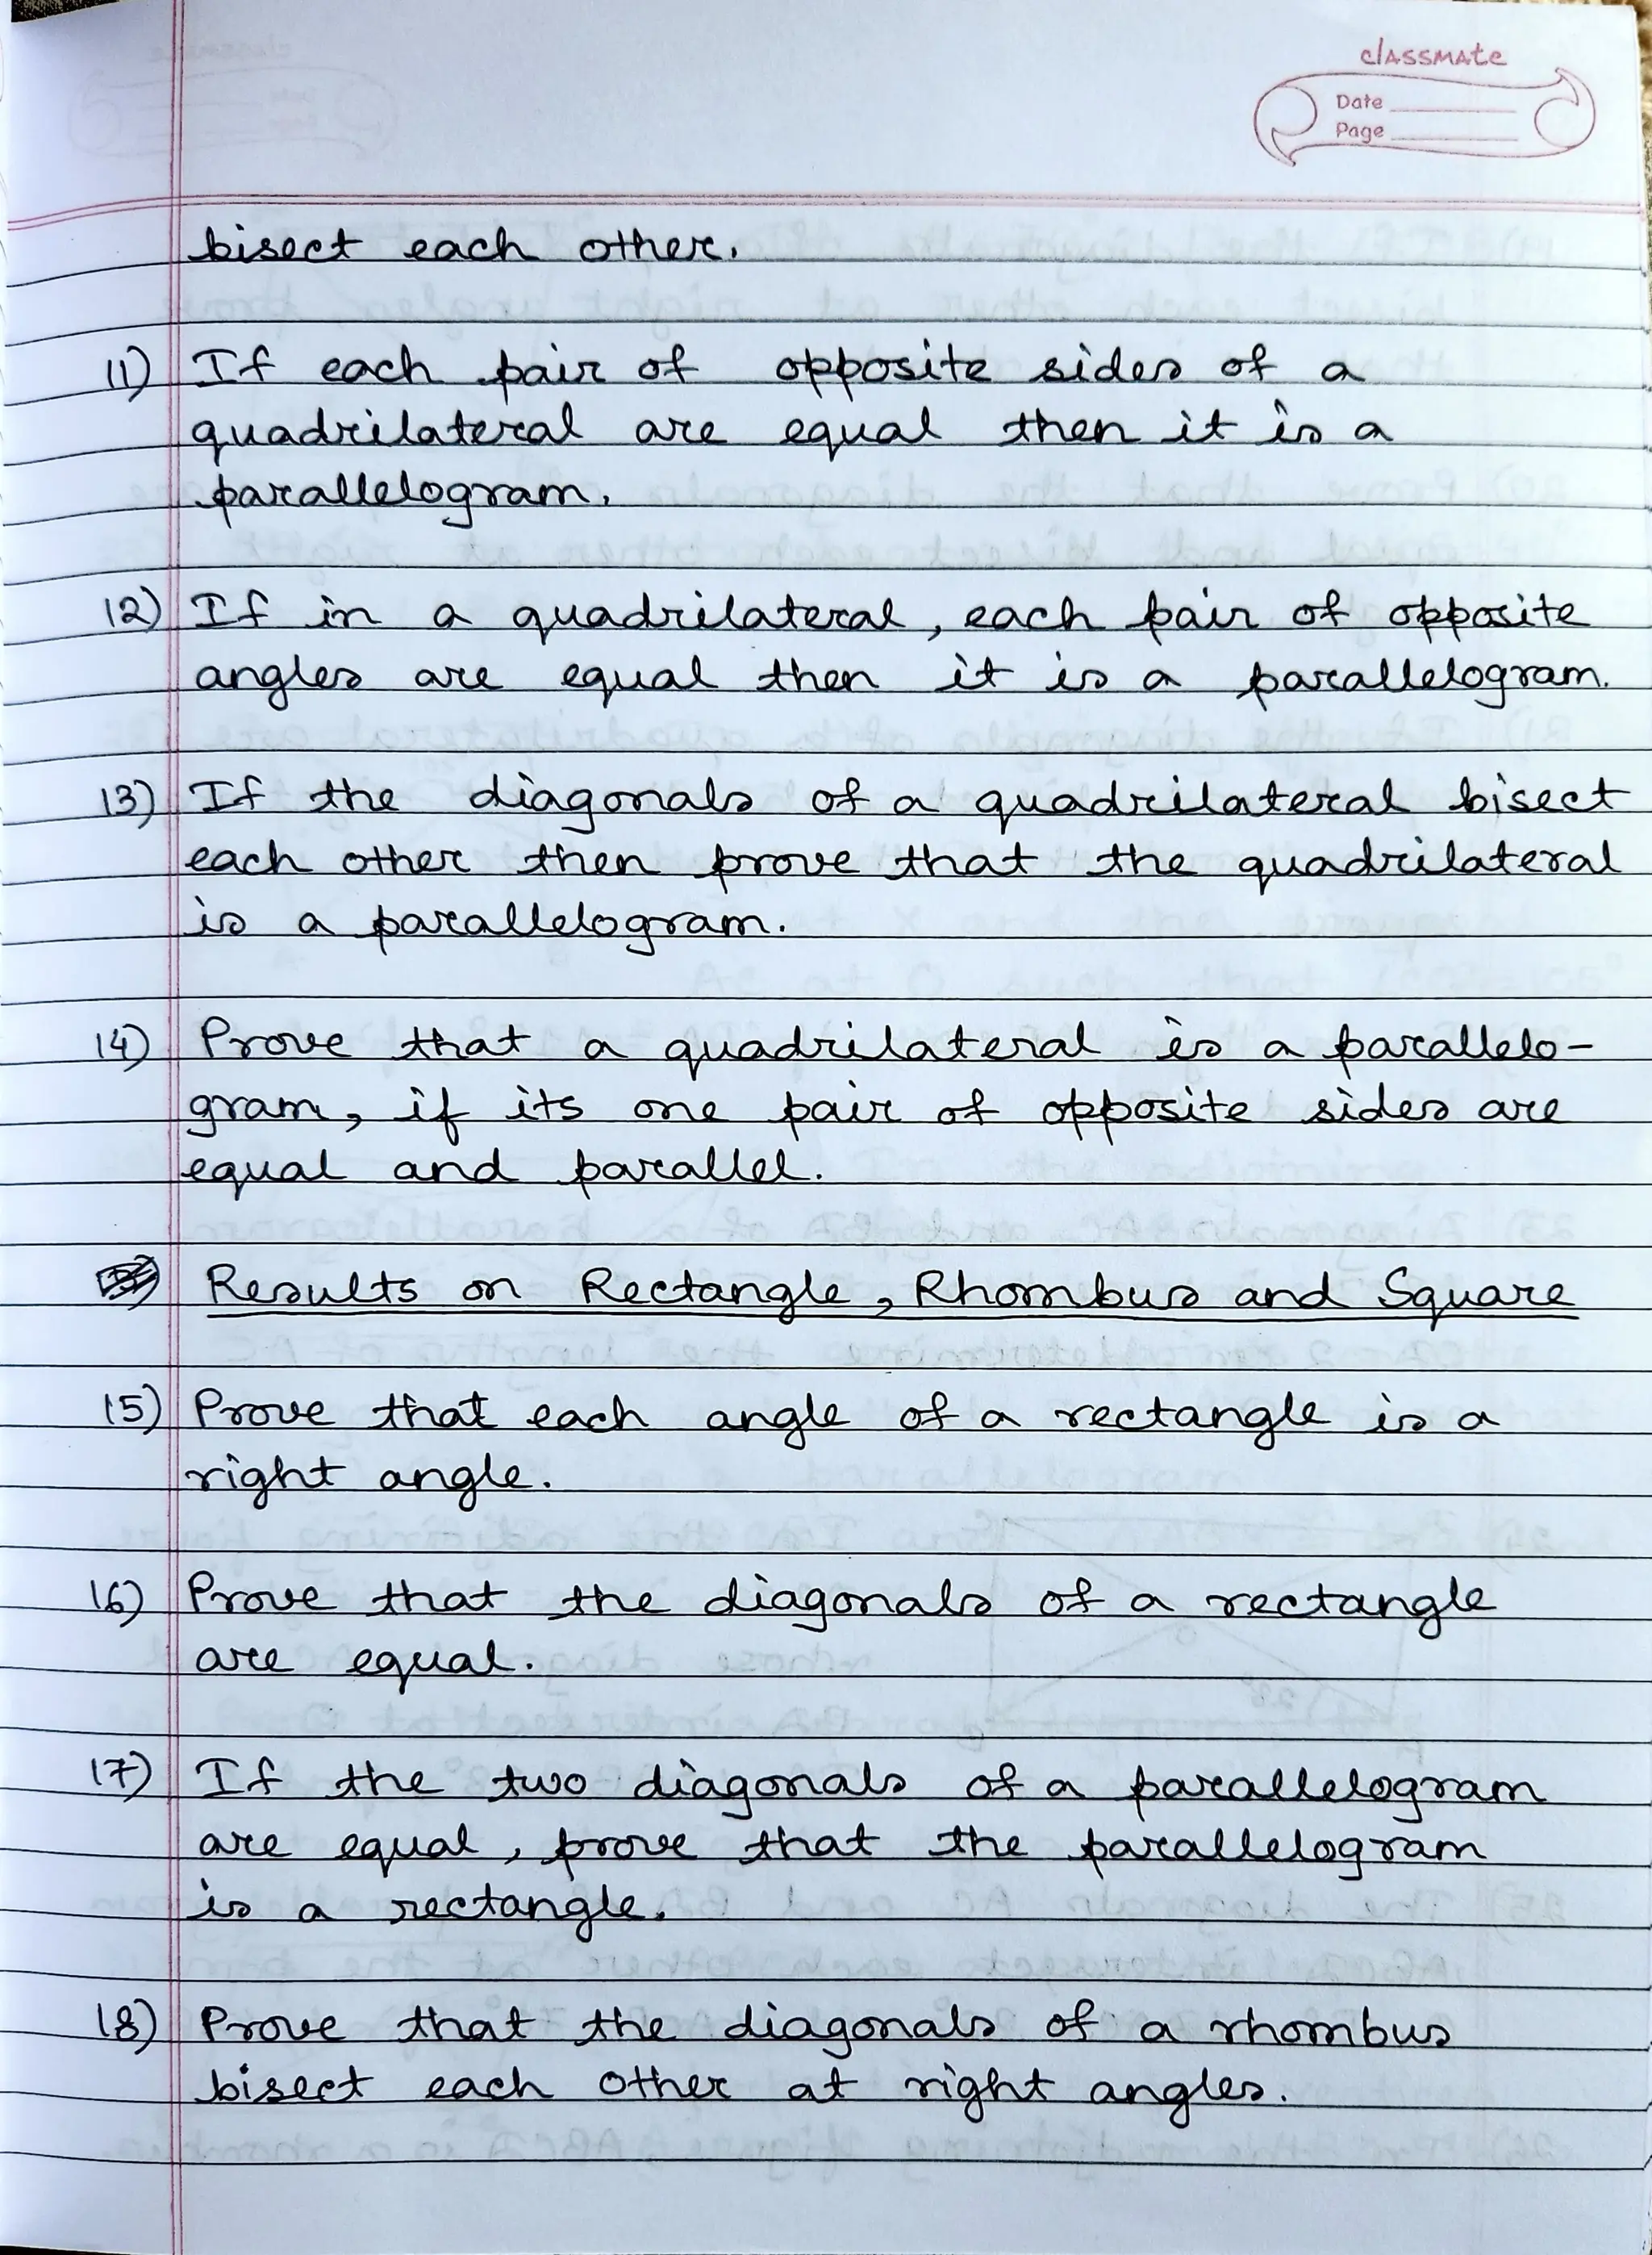 classmate
Date
Page
bisect each other.
11) If each pair of opposite sides of a
quadrilateral are equal then it is a
parallelogram.
12) If in a quadrilateral, each pair of opposite
angles are equal then it is a parallelogram.
13) If the diagonals of a quadrilateral bisect
each other then prove that the quadrilateral
is a parallelogram.
14) Prove that a quadrilateral is a parallelo-
gram, if its one pair of opposite sides are
equal and parallel.
Results on Rectangle, Rhombus and Square
15) Prove that each angle of a rectangle is a
right angle.
16) Prove that the diagonals of a rectangle
are equal.
17) If the two diagonals of a parallelogram
are equal, prove that the parallelogram
is a rectangle.
18) Prove that the diagonals of a rhombus
bisect each other at right angles.